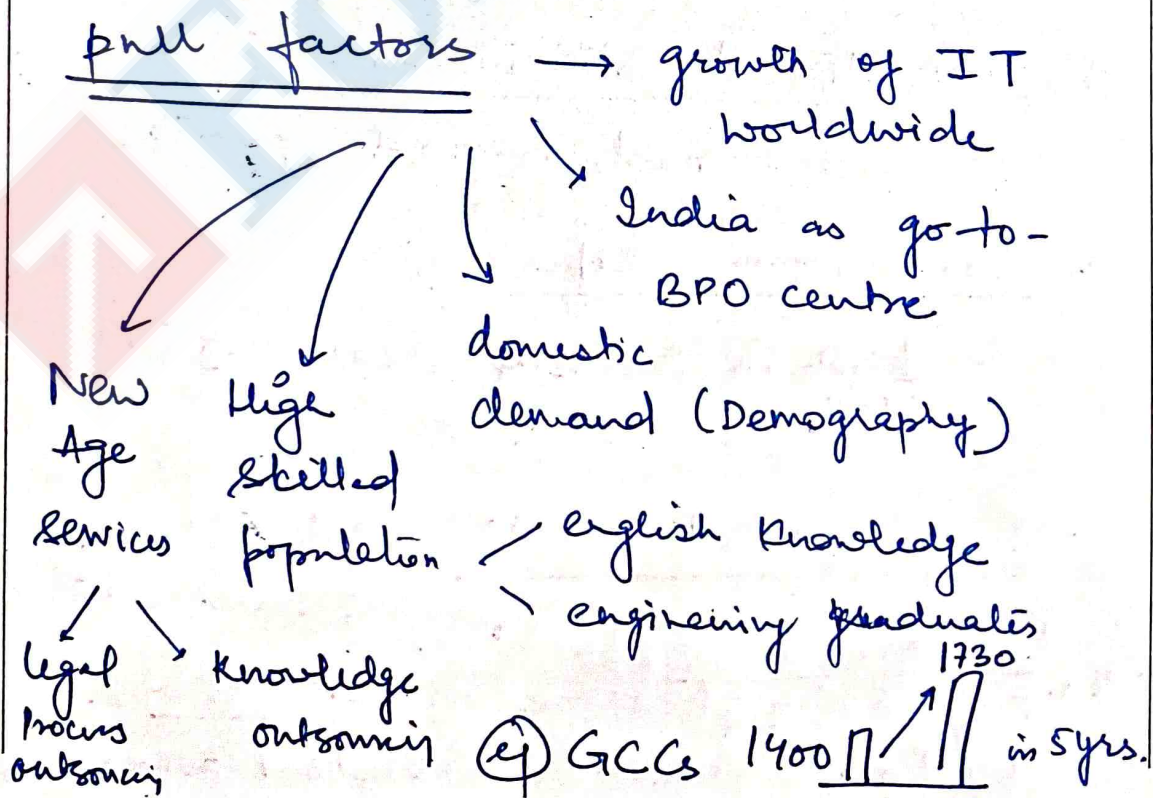 pull factors → growth of IT
worldwide
India as go-to-
BPO centre
domestic
demand (Demography)
New
Age
services
High
skilled
population
english knowledge
engineering graduates
legal
process
outsourcing
knowledge
outsourcing
eg GCCs 1400 1730 in 5yrs.